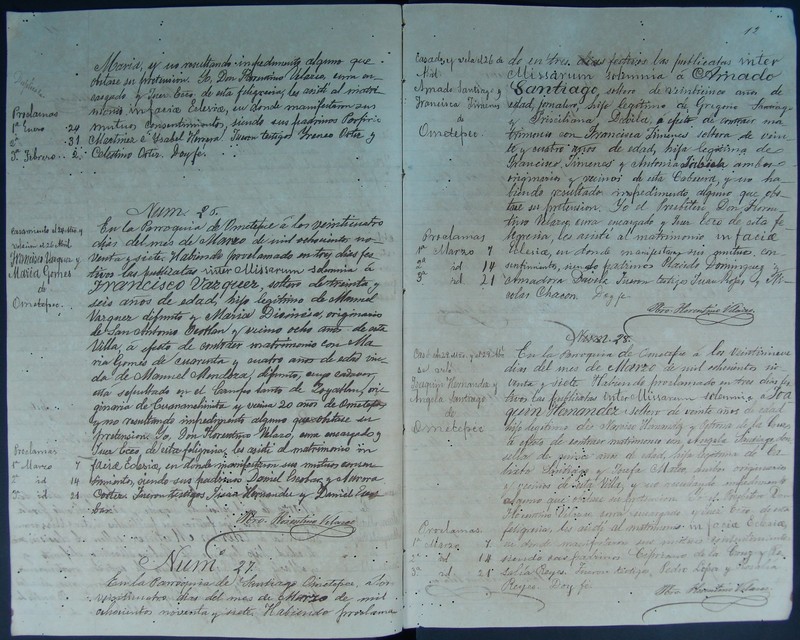 Maria, y no resultando impedimento alguno que
obstase su pretension. Yo, Don Florentino Velasco, cura en-
cargado y Juez Ecco. de esta feligresia, les asisti al matri-
monio infacia Eclesiæ, en donde manifestaron sus
mutuos consentimientos, siendo sus padrinos Porfirio
Martinez é Isabel Herrera. Fueron testigos Ireneo Ortiz y
Celestino Ortiz. Doy fe.
Proclamas
1ª Enero 24
2ª " 31
3ª Febrero 2
Num. 26.
Casamiento el 24 de id. y
velacion el 25. Mil
Francisco Vazquez y
Maria Gomes
de
Ometepec.
En la Parroquia de Ometepec á los veinticuatro
dias del mes de Marzo de mil ochocientos no-
venta y siete. Habiendo proclamado en tres dias fes-
tivos las publicatas inter Missarum solemnia á
Francisco Vazquez, soltero de treinta y
seis años de edad, hijo legitimo de Manuel
Vazquez difunto y Maria Dionicia, originario
de San Antonio Ocotlan y vecino ocho años de esta
Villa, á efecto de contraer matrimonio con Ma-
ria Gomes de cuarenta y cuatro años de edad viu-
da de Manuel Mendoza, difunto, cuyo cadaver
esta sepultado en el Campo Santo de Zoyatlan, ori-
ginaria de y vecina 20 años de Ometepec
y no resultando impedimento alguno que obstase su
pretension. Yo, Don Florentino Velasco, cura encargado y
Juez Ecco. de esta feligresia, les asisti al matrimonio in
facia Eclesiæ, en donde manifestaron sus mutuos consen-
timientos, siendo sus padrinos Daniel Escobar y Aurora
Cortes. Fueron testigos, Jesus Hernandez y Daniel Esco-
bar.
Proclamas
1ª Marzo 7
2ª id 14
3ª id 21
Pbro. Florentino Velasco
Num. 27.
En la Parroquia de Santiago Ometepec, á los
veinticuatro dias del mes de Marzo de mil
ochocientos noventa y siete. Habiendo proclama-
12
Casados y velados el 26 de
Mil
Amado Santiago y
Francisca Jimenes
de
Ometepec.
do en tres dias festivos las publicatas inter
Missarum solemnia á Amado
Santiago, soltero de veinticinco años de
edad, jornalero, hijo legitimo de Gregorio Santiago
y Prisciliana Davila, á efecto de contraer ma-
trimonio con Francisca Jimenes soltera de vein-
te y cuatro años de edad, hija legitima de
Francisco Jimenes y Antonia ambos
originarios y vecinos de esta Cabecera, y no ha-
biendo resultado impedimento alguno que obs-
tase su pretension. Yo el Presbitero Don Floren-
tino Velasco, cura encargado y Juez Ecco. de esta fe-
ligresia, les asisti al matrimonio infacia
Eclesia, en donde manifestaron sus mutuos con-
sentimientos, siendo padrinos Placido Dominguez y
Amadora Davila. Fueron testigos Juan Rojas y Ni-
colas Chacon. Doy fe.
Proclamas
1ª Marzo 7
2ª id 14
3ª id 21
Pbro. Florentino Velasco
Num. 28.
Joaquin Hernandez y
Angela Santiago
de
Ometepec
En la Parroquia de Ometepec á los veintinueve
dias del mes de Marzo de mil ochocientos no-
venta y siete. Habiendo proclamado en tres dias fes-
tivos las publicatas inter Missarum solemnia á Joa-
quin Hernandez soltero de veinte años de edad
hijo legitimo de Hernandez y de la Cruz,
á efecto de contraer matrimonio con Angela Santiago don-
cella de quince años de edad, hija legitima de
Santiago y Josefa ambos originarios
y vecinos de esta Villa, y no resultando impedimento
alguno que obstase su pretension. Yo el Presbitero Don
Florentino Velasco, cura encargado y Juez Ecco. de esta
feligresia, les asisti al matrimonio infacia Eclesia,
en donde manifestaron sus mutuos consentimientos
siendo sus padrinos Cipriano de la Cruz y
Reyes. Fueron testigos, Pedro Lopez y
Reyes. Doy fe.
Proclamas
1ª Marzo 7
2ª id 14
3ª id 21
Pbro. Florentino Velasco